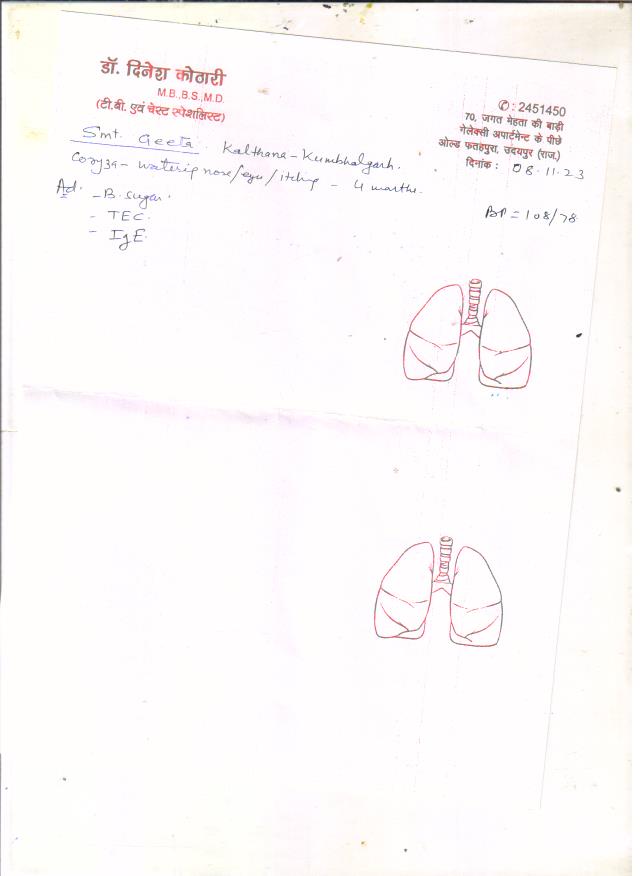 डॉ. दिनेश कोठारी
M.B.,B.S.,M.D.
(टी.बी. एवं चेस्ट स्पेशलिस्ट)
✆ : 2451450
70, जगत मेहता की बाड़ी
गेलेक्सी अपार्टमेन्ट के पीछे
ओल्ड फतहपुरा, उदयपुर (राज.)
दिनांक : 08.11.23
Smt. Geeta. Kalthana-Kumbhalgarh.
Coryza - watering nose/eye/itching - 4 months.
Ad.
- B. sugar.
- TEC.
- IgE.
BP = 108/78